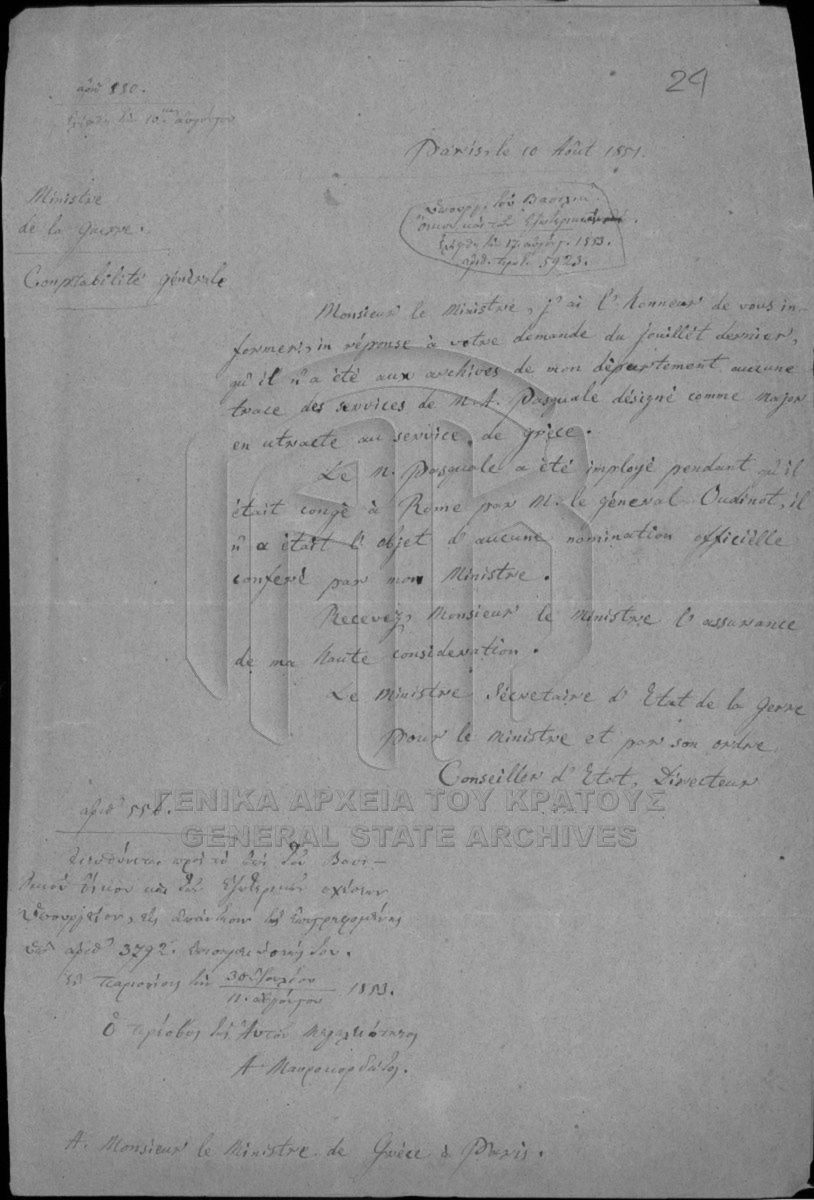 29
αριθ 550.
Paris, le 10 Août 1851.
Ministre
de la Guerre.
Comptabilité générale
Ὑπουργ. τοῦ Βασιλικ
οἴκου καὶ τῶν Ἐξωτερικῶν
17 αὐγούς. 1853.
αριθ. πρωτ. 5923.
Monsieur le Ministre, j'ai l'honneur de vous in-
former, in réponse à votre demande du jouillét dernier,
qu'il n'a été aux archives de mon département aucune
trace des services de M. A. Pasquale désigné comme Major
en utracte au service de grèce.
Le M. Pasquale a été imployé pendant qu'il
était congé à Rome par M. le général Oudinot, il
n'a était l'objet d'aucune nomination officièlle
conferé par mon Ministre.
Recevez, Monsieur le Ministre l'assurance
de ma haute consideration.
Le Ministre Sécretaire d'Etat de la Gerre
Pour le Ministre et par son ordre
Conseiller d'Etat, Directeur
ΓΕΝΙΚΑ ΑΡΧΕΙΑ ΤΟΥ ΚΡΑΤΟΥΣ
GENERAL STATE ARCHIVES
αριθ 556.
πρὸς τὸ ἐπὶ τοῦ Βασι-
λικοῦ Οἴκου καὶ τῶν Ἐξωτερικῶν σχέσεων
Ὑπουργεῖον, εἰς ἀπάντησιν τῆς
ὑπ' αριθ 3792.
Ἐν Παρισίοις τῇ 30 Ἰουλίου
11. αὐγούστου 1853.
Ὁ πρέσβυς τῆς Αὐτοῦ Μεγαλειότητος
Α Μαυροκορδάτος.
A. Monsieur le Ministre de Grèce à Paris.